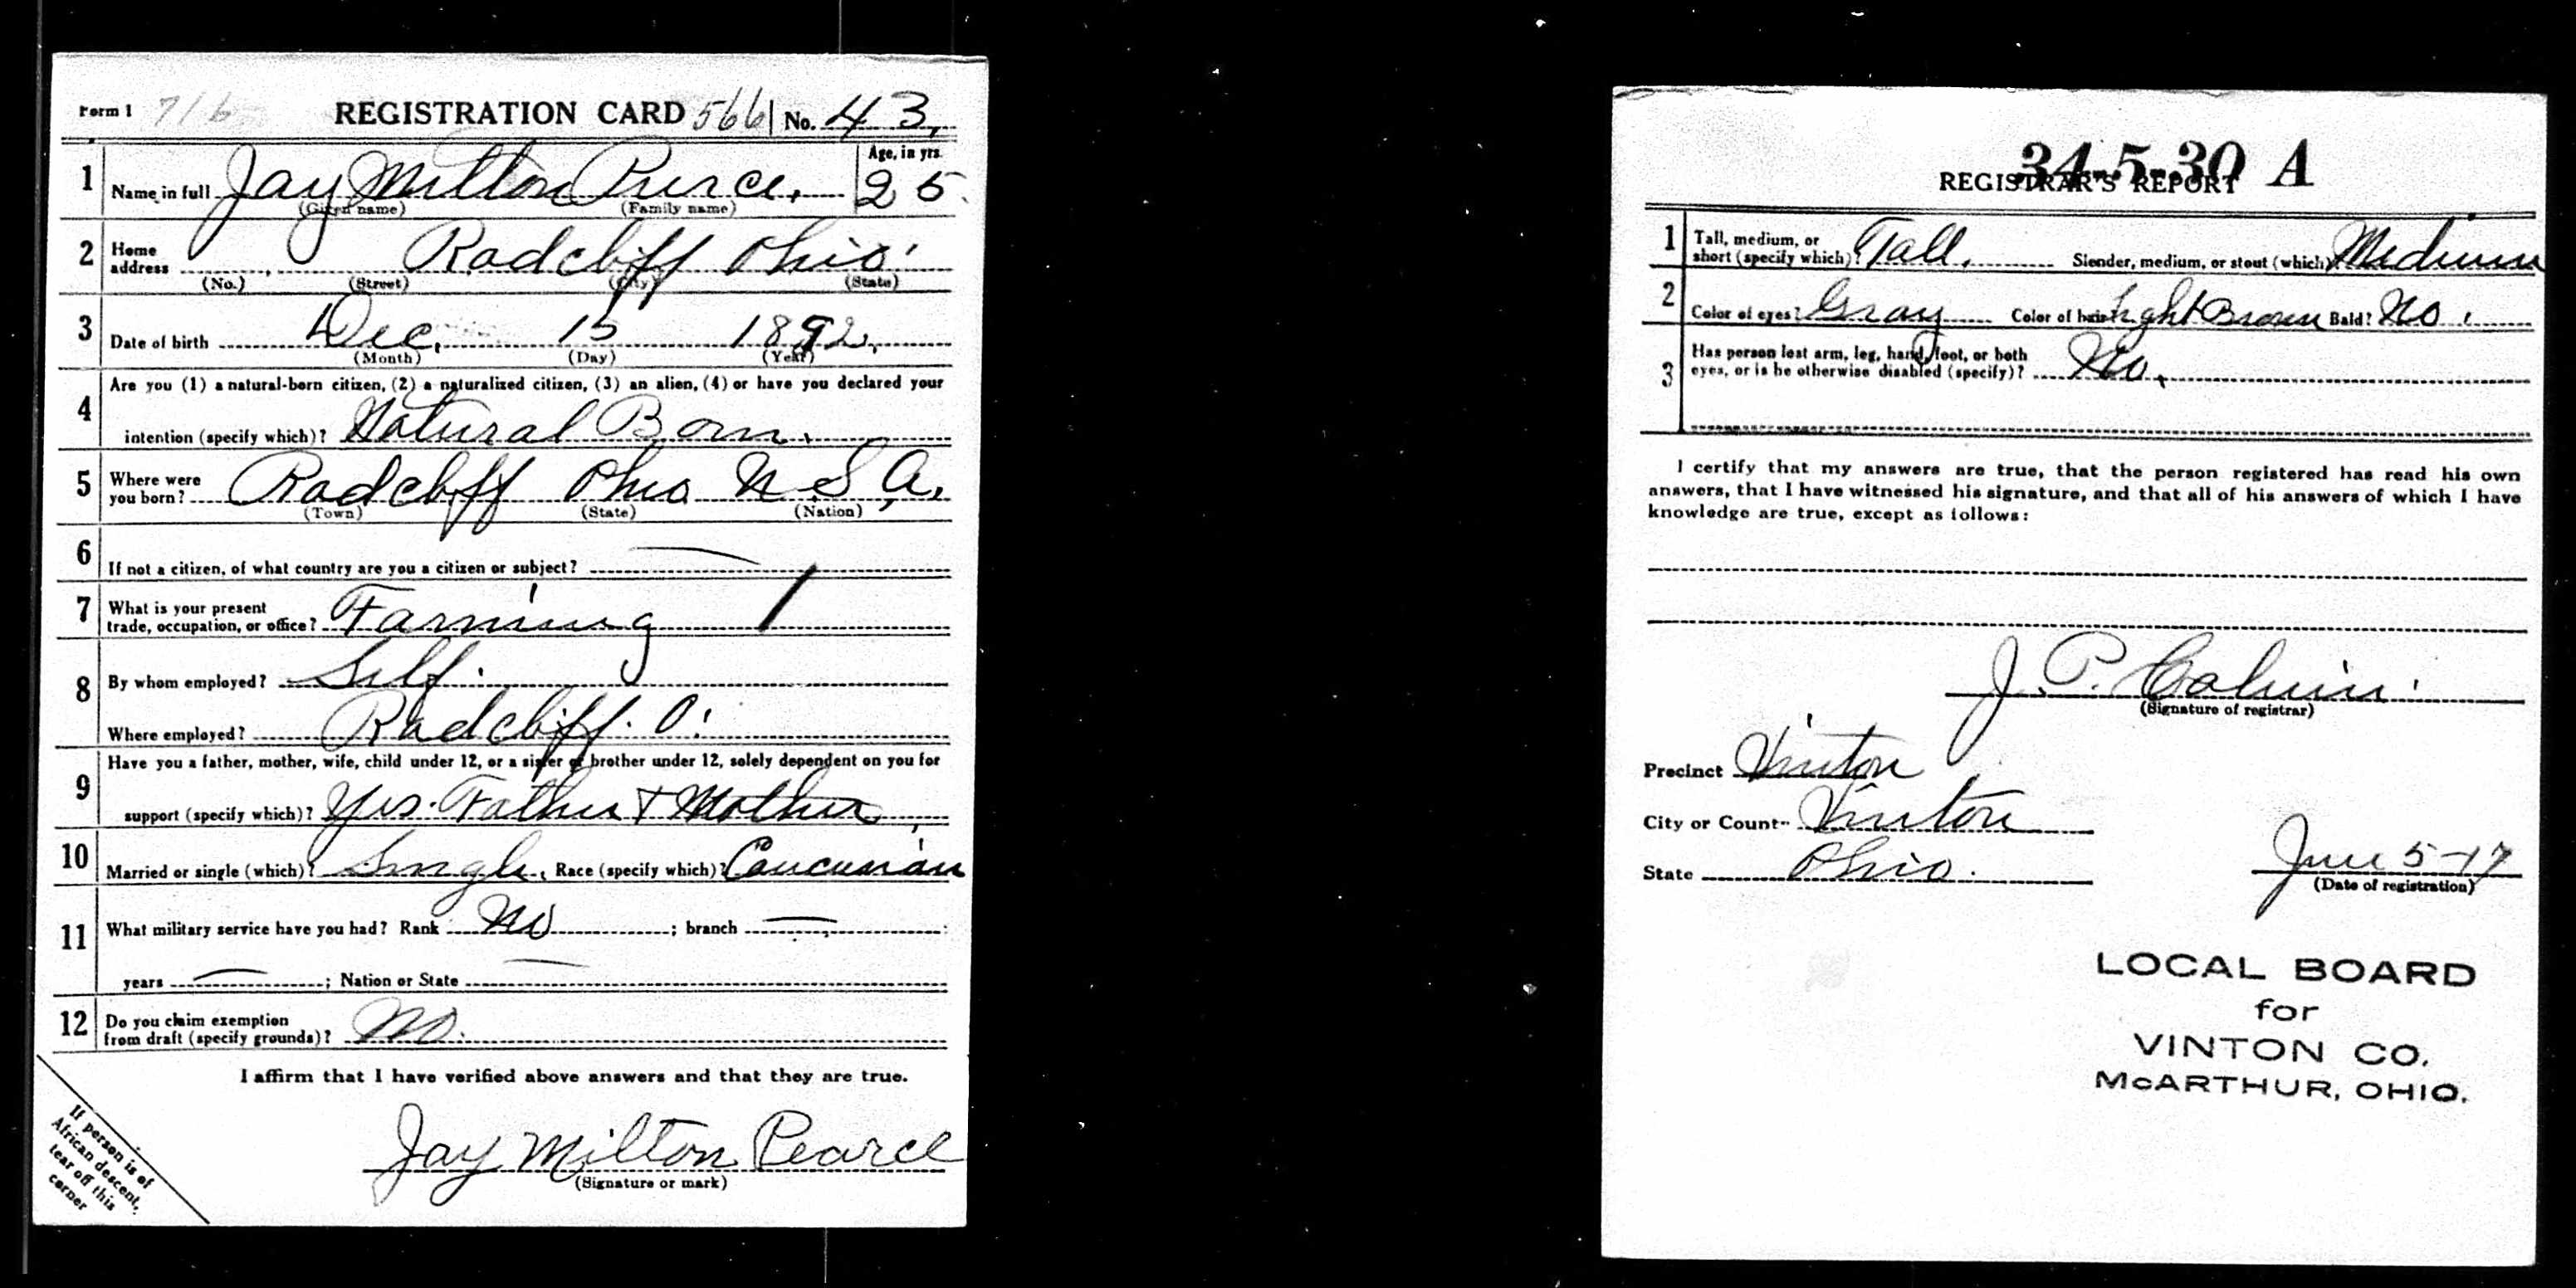 Form 1 716 REGISTRATION CARD 566 No. 43,
1 Name in full Jay Milton Pierce, Age, in yrs. 25.
(Given name) (Family name)
2 Home address Radcliff Ohio.
(No.) (Street) (City) (State)
3 Date of birth Dec. 15 1892.
(Month) (Day) (Year)
4 Are you (1) a natural-born citizen, (2) a naturalized citizen, (3) an alien, (4) or have you declared your
intention (specify which)? Natural Born.
5 Where were you born? Radcliff Ohio U.S.A.
(Town) (State) (Nation)
6 If not a citizen, of what country are you a citizen or subject? —
7 What is your present
trade, occupation, or office? Farming /
8 By whom employed? Self.
Where employed? Radcliff. O.
9 Have you a father, mother, wife, child under 12, or a sister or brother under 12, solely dependent on you for
support (specify which)? Yes. Father & Mother
10 Married or single (which)? Single. Race (specify which)? Caucasian
11 What military service have you had? Rank No ; branch —
years — ; Nation or State —
12 Do you claim exemption
from draft (specify grounds)? No.
I affirm that I have verified above answers and that they are true.
Jay Milton Pearce
(Signature or mark)
If person is of
African descent,
tear off this
corner
34-5-30 A
REGISTRAR'S REPORT
1 Tall, medium, or
short (specify which)? Tall. Slender, medium, or stout (which)? Medium
2 Color of eyes? Gray Color of hair? Light Brown Bald? No.
3 Has person lost arm, leg, hand, foot, or both
eyes, or is he otherwise disabled (specify)? No.
I certify that my answers are true, that the person registered has read his own
answers, that I have witnessed his signature, and that all of his answers of which I have
knowledge are true, except as follows:
J. P. Calvin.
(Signature of registrar)
Precinct Vinton
City or County Vinton
State Ohio.
June 5-17
(Date of registration)
LOCAL BOARD
for
VINTON CO.
McARTHUR, OHIO.